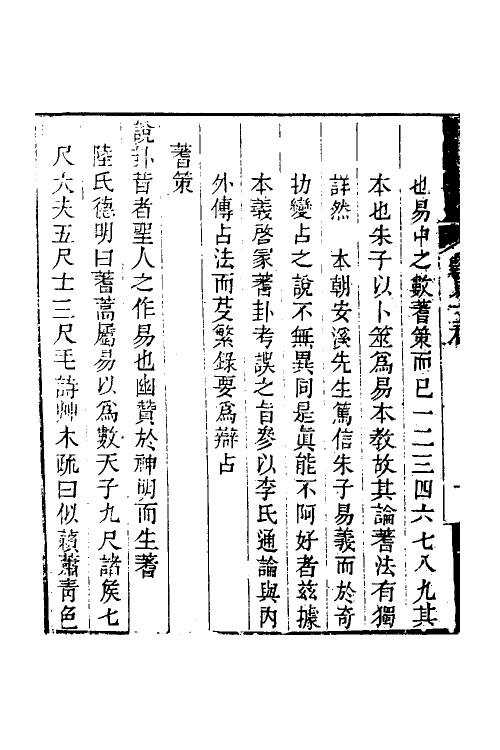 也易中之數蓍策而已一二三四六七八九其
本也朱子以卜筮爲易本教故其論蓍法有獨
詳然　本朝安溪先生篤信朱子易義而於奇
扐變占之說不無異同是眞能不阿好者茲據
本義啓蒙蓍卦考誤之旨參以李氏通論與內
外傳占法而芟繁錄要爲辯占
蓍策
說卦昔者聖人之作易也幽贊於神明而生蓍
陸氏德明曰蓍蒿屬易以爲數天子九尺諸矦七
尺大夫五尺士三尺毛詩艸木疏曰似藾蕭靑色